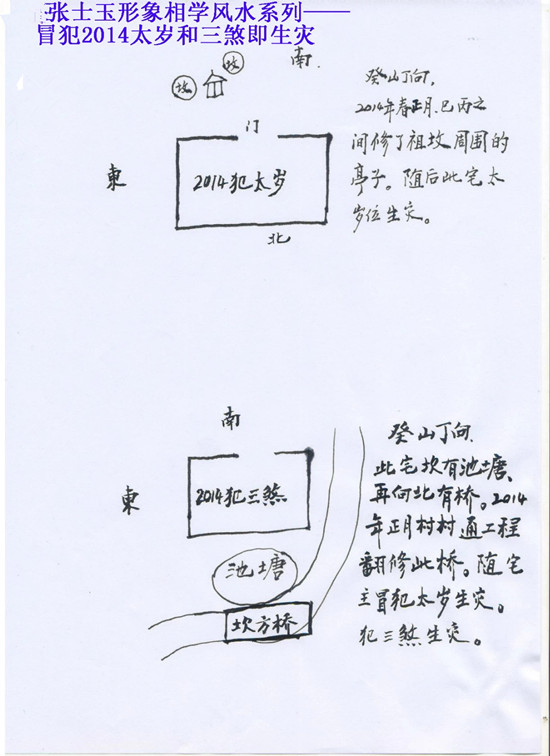 张士玉形象相学风水系列——
冒犯2014太岁和三煞即生灾
南
坟
坟
癸山丁向.
2014年春正月.巳丙之
间修了祖坟周围的
亭子。随后此宅太
岁位生灾。
门
東
2014犯太岁
北
南
癸山丁向.
此宅坎有池塘、
再向北有桥。2014
年正月村村通工程
翻修此桥。随宅
主冒犯太岁生灾。
犯三煞生灾。
東
2014犯三煞
池塘
坎方桥